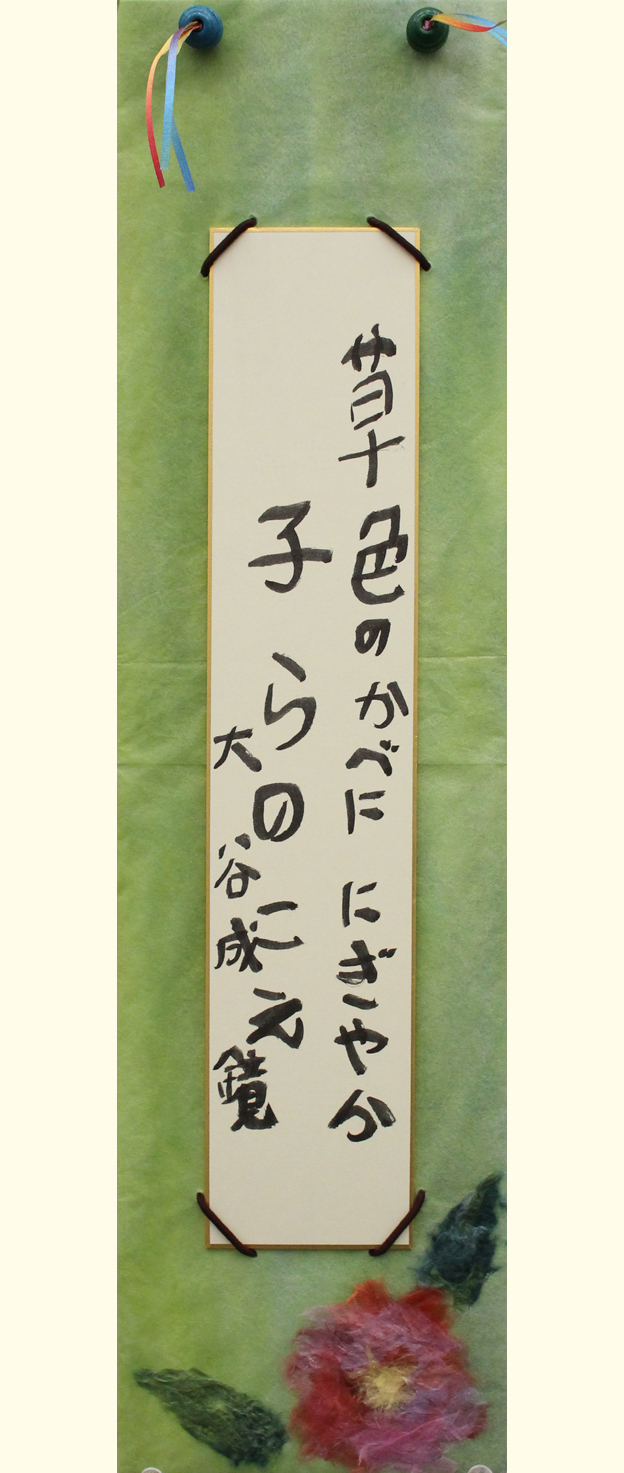 草色のかべに にぎやか
子らのこえ
大谷成鏡